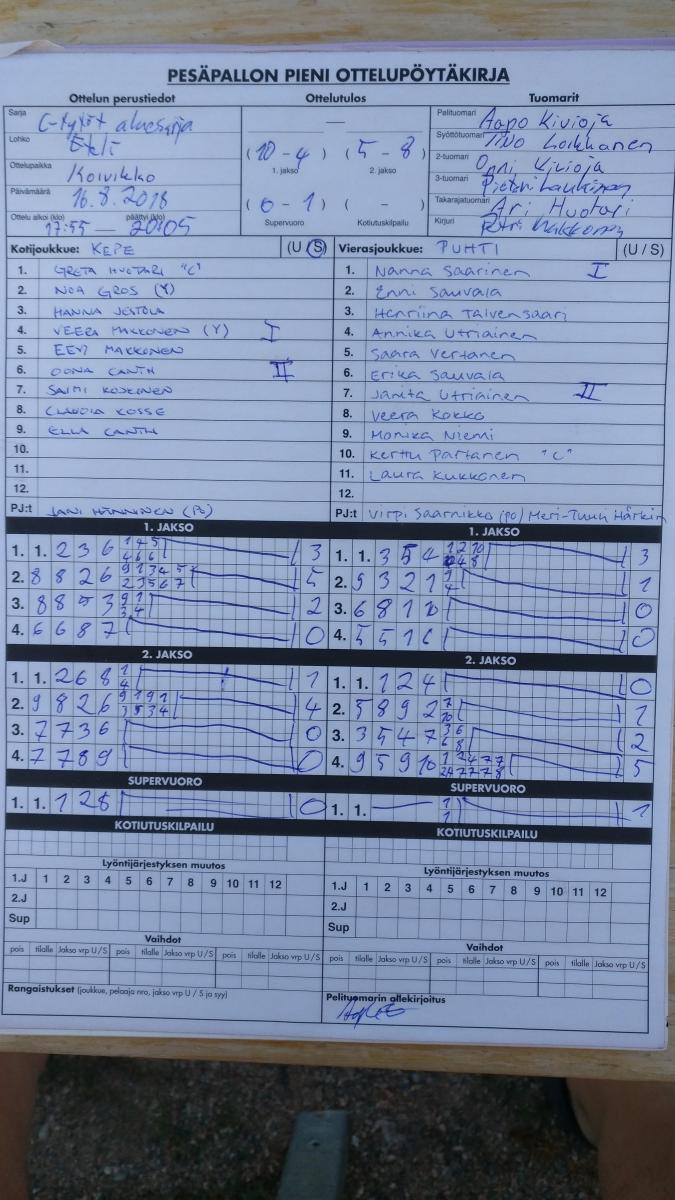 PESÄPALLON PIENI OTTELUPÖYTÄKIRJA
Ottelun perustiedot
Ottelutulos
Tuomarit
Sarja C-tytöt aluesarja
Lohko Etelä
Ottelupaikka Koivikko
Päivämäärä 16.8.2018
Ottelu alkoi (klo) 17:55 — päättyi (klo) 20:05
—
(10 - 4) (5 - 8)
1. jakso 2. jakso
(0 - 1) ( - )
Supervuoro Kotiutuskilpailu
Pelituomari Aapo Kivioja
Syöttötuomari Loikkanen
2-tuomari Onni Kivioja
3-tuomari
Takarajatuomari Ari Huotari
Kirjuri Makkonen
Kotijoukkue: KEPE (U / S)
1. GRETA HUOTARI "C"
2. NOA GROS (Y)
3. HANNA
4. VEERA MAKKONEN (Y) I
5. EEVI MAKKONEN
6. OONA CANTH II
7. SAIMI KOSKINEN
8. CLAUDIA KOSSE
9. ELLA CANTH
10.
11.
12.
PJ:t JANI HÄNNINEN (Po)
Vierasjoukkue: PUHTI (U / S)
1. Nanna Saarinen I
2. Enni Sauvala
3. Henriina Talvensaari
4. Annika Utriainen
5. Saara Vertanen
6. Erika Sauvala
7. Janita Utriainen II
8. Veera Kokko
9. Monika Niemi
10. Kerttu Partanen "C"
11. Laura Kukkonen
12.
PJ:t Virpi Saarnikko (po) Meri-Tuuli Härkin
1. JAKSO
1. 1. 2 3 6 3
2. 8 8 2 6 5
3. 8 8 5 3 2
4. 6 6 8 7 0
2. JAKSO
1. 1. 2 6 8 1
2. 9 8 2 6 4
3. 7 7 3 6 0
4. 7 7 8 9 0
SUPERVUORO
1. 1. 1 2 8 0
KOTIUTUSKILPAILU
1. JAKSO
1. 1. 3 5 4 3
2. 9 3 2 1 1
3. 6 8 1 10 0
4. 5 5 1 0
2. JAKSO
1. 1. 1 2 4 0
2. 5 8 9 2 1
3. 3 5 4 7 2
4. 9 5 9 10 5
SUPERVUORO
1. 1. — 1
KOTIUTUSKILPAILU
Lyöntijärjestyksen muutos
1.J 1 2 3 4 5 6 7 8 9 10 11 12
2.J
Sup
Vaihdot
pois tilalle Jakso vrp U/S pois tilalle Jakso vrp U/S pois tilalle
Rangaistukset (joukkue, pelaaja nro, jakso vrp U / S ja syy)
Lyöntijärjestyksen muutos
1.J 1 2 3 4 5 6 7 8 9 10 11 12
2.J
Sup
Vaihdot
pois tilalle Jakso vrp U/S pois tilalle Jakso vrp U/S pois tilalle Jakso vrp U/S
Pelituomarin allekirjoitus